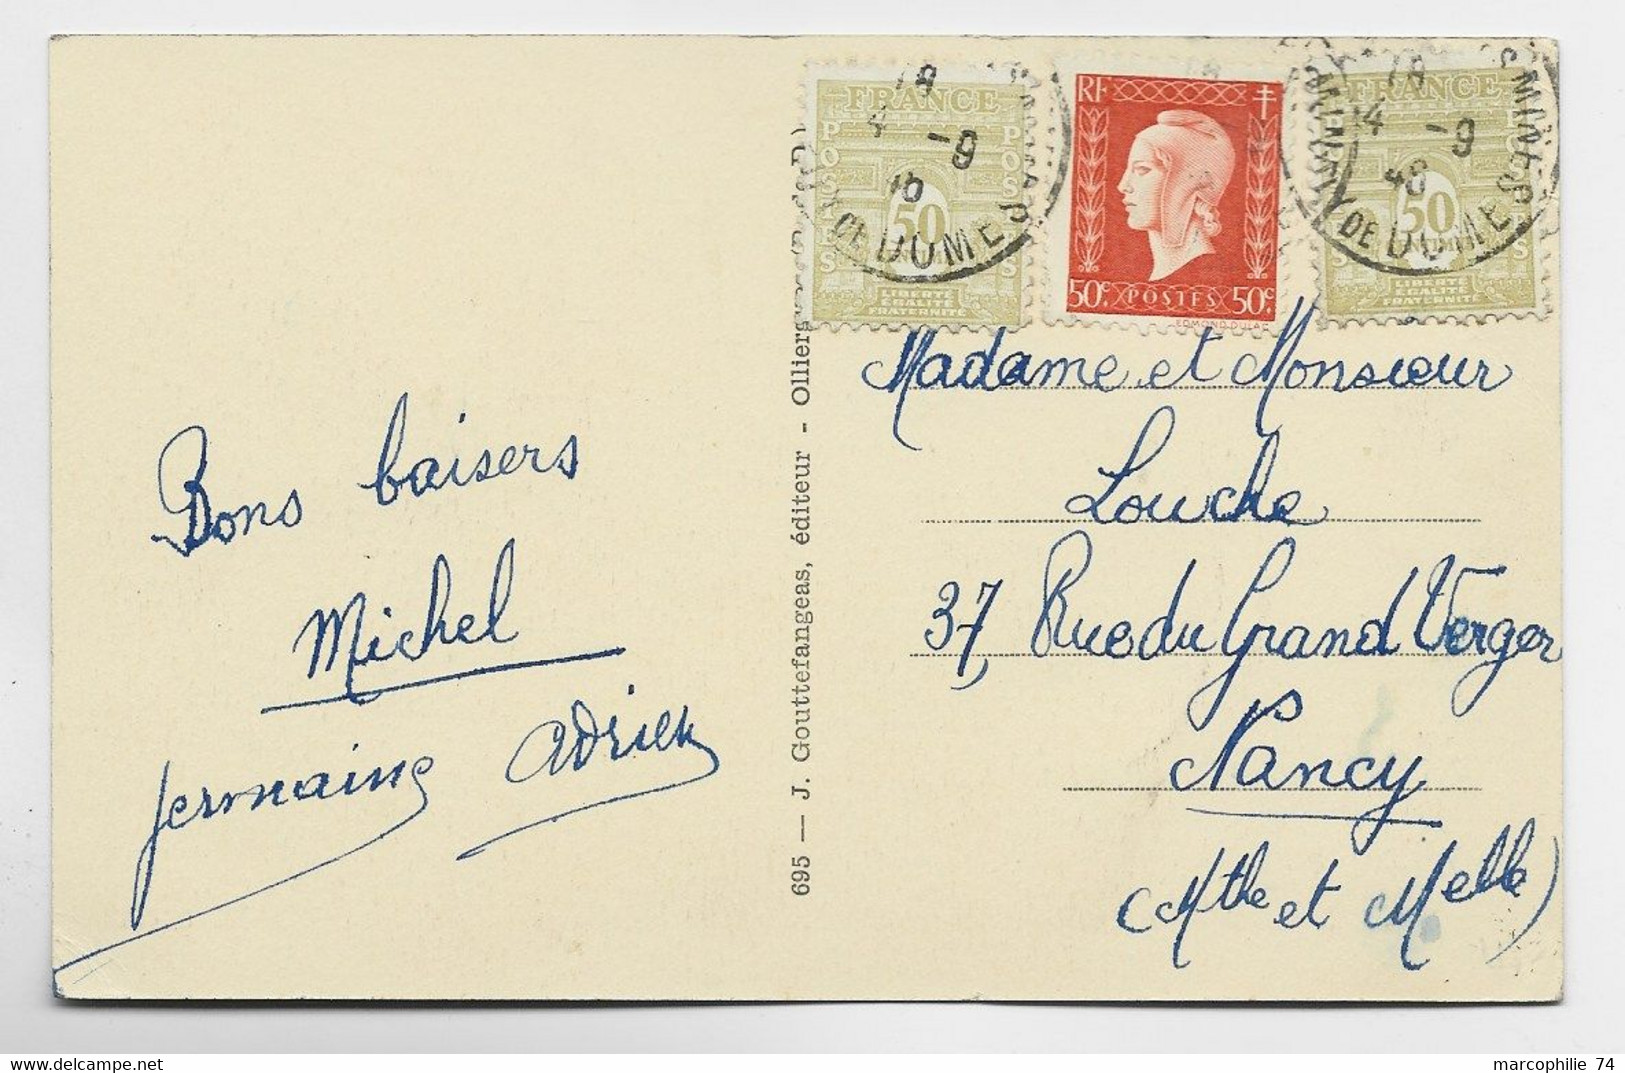 Bons baisers
Michel
Germaine Adrien
695 — J. Gouttefangeas, éditeur - Olliergues (P.-de-D.)
FRANCE
POSTES
50
LIBERTÉ
ÉGALITÉ
FRATERNITÉ
RF
50c. POSTES 50c.
EDMOND DULAC
FRANCE
POSTES
50
LIBERTÉ
ÉGALITÉ
FRATERNITÉ
18
4 -9
DE DOME
18
14 -9
46
DE DOME
Madame et Monsieur
Louche
37 Rue du Grand Verger
Nancy
(Mthe et Melle)
marcophilie 74